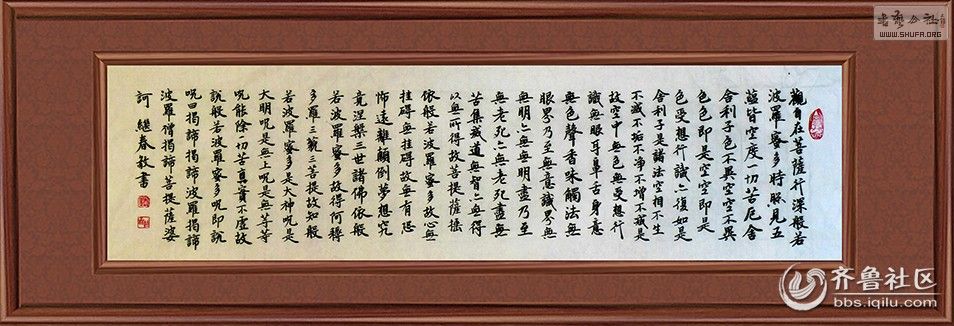 觀自在菩薩行深般若
波羅蜜多時照見五
蘊皆空度一切苦厄舍
舍利子色不異空空不異
色色即是空空即是
色受想行識亦復如是
舍利子是諸法空相不生
不滅不垢不淨不增不減是
故空中無色無受想行
識無眼耳鼻舌身意
無色聲香味觸法無
眼界乃至無意識界無
無明亦無無明盡乃至
無老死亦無老死盡無
苦集滅道無智亦無得
以無所得故菩提薩埵
依般若波羅蜜多故心無
挂碍無挂碍故無有恐
怖遠離顛倒夢想究
竟涅槃三世諸佛依般
若波羅蜜多故得阿耨
多羅三藐三菩提故知般
若波羅蜜多是大神咒是
大明咒是無上咒是無等等
咒能除一切苦真實不虛故
說般若波羅蜜多咒即說
咒曰揭諦揭諦波羅揭諦
波羅僧揭諦菩提薩婆
訶 繼春敬書
書藝公社
WWW.SHUFA.ORG
齐鲁社区
bbs.iqilu.com